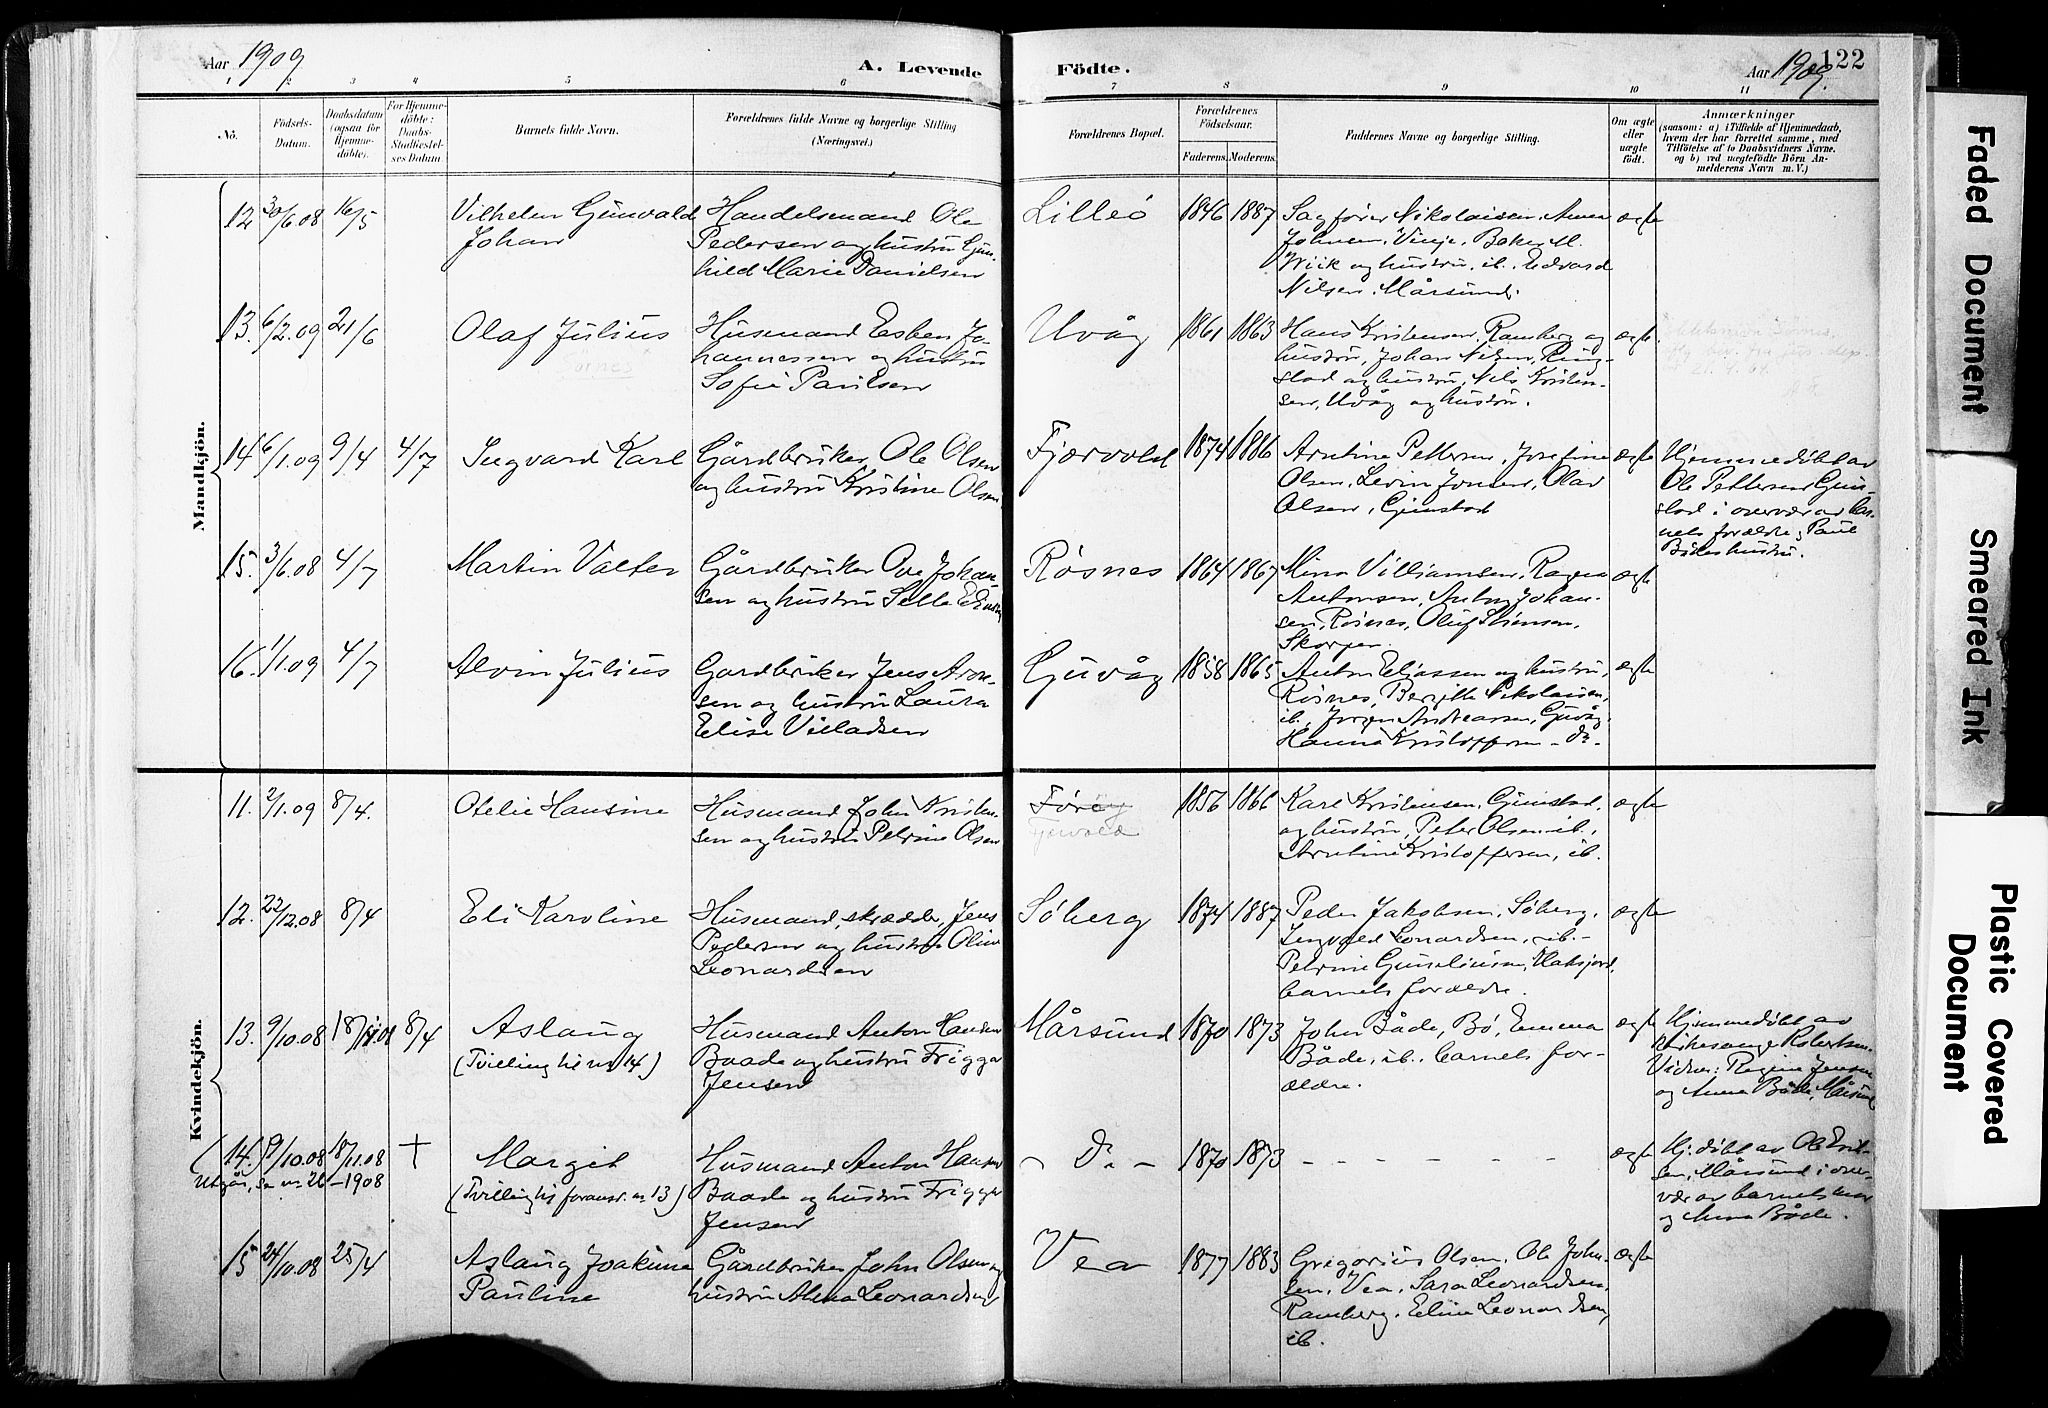 Aar 1909
A. Levende Födte.
Aar 1909.
122
1 2 3 4 5 6 7 8 9 10 11
No.
Födsels-
Datum.
Daabsdatum
(ogsaa for
Hjemme-
döbte).
For Hjemme-
döbte:
Daabs-
Stadfæstel-
ses Datum
Barnets fulde Navn.
Forældrenes fulde Navne og borgerlige Stilling
(Næringsvei.)
Forældrenes Bopæl.
Forældrenes
Födselsaar.
Faderens.
Moderens.
Faddernes Navne og borgerlige Stilling.
Om ægte
eller
uægte
födt.
Anmærkninger
(saasom: a) i Tilfælde af Hjemmedaab,
hvem der har forrettet samme, med
Tilföielse af to Daabsvidners Navne,
og b) ved uægtefödte Börn An-
melderens Navn m. V.)
Mandkjön.
12 30/6.08 16/5
Vilhelm Gunvald
Johan
Handelsmand Ole
Pedersen og hustru Gun-
hild Marie Danielsen
Lilleö 1846 1887
Sagförer Nikolaisen, Anna
Johnsen, Vinje, Baker M.
Wiik og hustru, ib., Edvard
Nilsen, Mårsund.
ægte
13. 6/2.09 21/6
Olaf Julius
Husmand Esben Jo-
hannessen og hustru
Sofie Paulsen
Uvåg 1861 1863
Hans Kristensen, Ramberg og
hustru, Johan Nilsen, Ring-
stad og hustru, Nils Kristen-
sen, Uvåg og hustru.
ægte.
14 6/1.09 9/4 4/7
Ingvard Karl
Gårdbruker Ole Olsen
og hustru Kristine Olsen
Fjærvold 1874 1886
Arntine Pettersen, Josefine
Olsen, Levin Jonsen, Olav
Olsen, Guustad
ægte
Hjemmedöbt av
Ole Pettersen Guu-
stad i overvær av bar-
nets forældre, Paul
Bådes hustru.
15. 3/6.08 4/7
Martin Valter
Gårdbruker Ove Johan-
sen og hustru
Rösnes 1864 1867
Mina Villiamsen, Ragna
Antonsen, Anton Johan-
sen, Rösnes, Oluf Simonsen,
Skorpen.
ægte
16. 1/1.09 4/7
Alvin Julius
Gardbruker Jens Aron-
sen og hustru Laura
Elise Villadsen
Guvåg 1858 1865
Anton Eliassen og hustru,
Rösnes, Bergitte Nikolaisen,
ib., Jörgen Andreassen, Guvåg,
Hanna Kristoffersen – Do –
ægte
Kvindekjön.
11. 2/1.09 8/4.
Otelie Hansine
Husmand John Kristen-
sen og hustru Petrine Olsen
Föröy
Fjærvold
1856 1866
Karl Kristensen, Guustad,
og hustru, Peter Olsen ib.,
Arntine Kristoffersen, ib.
ægte
12. 22/12.08 8/4
Eli Karoline
Husmand, skrædder, Jens
Pedersen og hustru Oline
Leonardsen
Söberg 1874 1887
Peder Jakobsen, Söberg,
Ingvald Leonardsen, ib. –
Petrine Guneliussen, Vlaksjord,
barnets forældre.
ægte
13. 9/10.08 18/11.08 8/4
Aslaug
(Tvilling til no 14)
Husmand Anton Hansen
Baade og hustru Frigga
Jensen
Mårsund 1870 1873
John Både, Bö, Emma
Både, ib., barnets for-
ældre.
ægte
Hjemmedöbt av
Kirkesanger Robertsen.
Vidner: Regine Jensen
og Anna Både, Mårsund
(14.) 9/10.08 18/11.08 †
Utgår, se no 26 – 1908
Margit
(Tvilling til foranst. no 13)
Husmand Anton Hansen
Baade og hustru Frigga
Jensen
– Do – 1870 1873
– – – – – –
ægte
Hj. döbt av Ole Erik-
sen, Mårsund i over-
vær av barnets mor
og Anna Både.
15 24/10.08 25/4
Aslaug Joakime
Pauline
Gårdbruker John Olsen og
hustru Alena Leonardsen
Vea 1877 1883
Gregorius Olsen, Ole John-
sen, Vea, Sara Leonardsen,
Ramberg, Eline Leonardsen,
ib.
ægte
Faded Document
Smeared Ink
Plastic Covered
Document